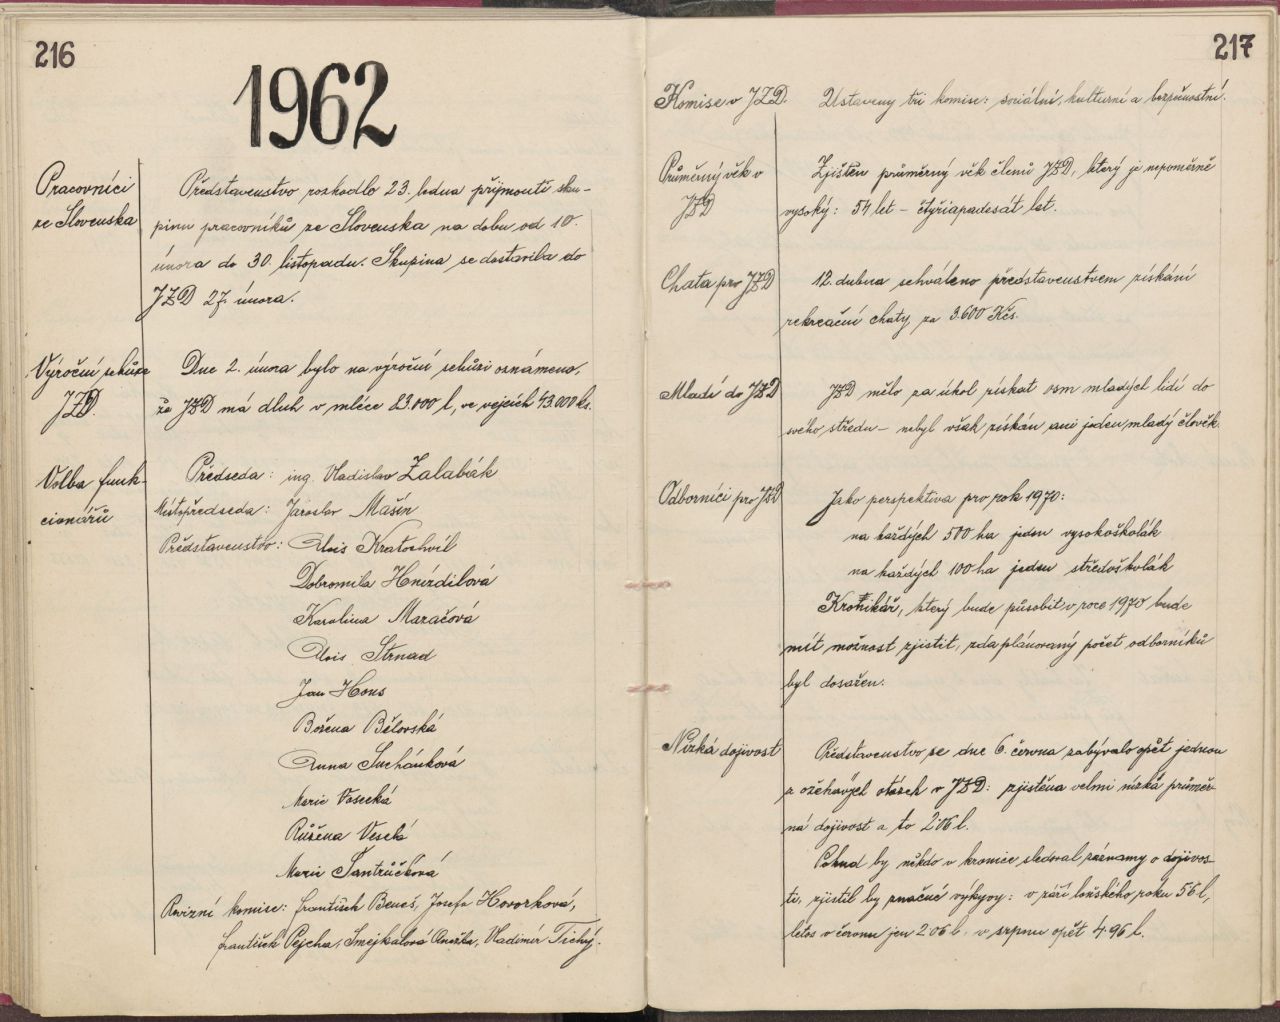 216
1962
Pracovníci
ze Slovenska
Představenstvo rozhodlo 23. ledna přijmouti sku-
pinu pracovníků ze Slovenska na dobu od 10.
února do 30. listopadu. Skupina se dostavila do
JZD 27. února.
Výroční schůze
JZD.
Dne 2. února bylo na výroční schůzi oznámeno,
že JZD má dluh v mléce 23.000 l, ve vejcích 43.000 ks.
Volba funk-
cionářů
Předseda: ing. Vladislav Zalabák
Místopředseda: Jaroslav Mašín
Představenstvo: Alois Kratochvíl
Dobromila Hnízdilová
Karolina Maračová
Alois Strnad
Jan Hons
Božena Bělovská
Anna Suchánková
Marie Vosecká
Růžena Veselá
Marie Šantrůčková
Revizní komise: František Beneš, Josefa Hovorková,
František Pejcha, Smejkalová Anežka, Vladimír Tichý.
217
Komise v JZD.
Ustaveny tři komise: sociální, kulturní a bezpečnostní.
Průměrný věk v
JZD
Zjištěn průměrný věk členů JZD, který je nepoměrně
vysoký: 54 let – čtyřiapadesát let.
Chata pro JZD
12. dubna schváleno představenstvem získání
rekreační chaty za 3.600 Kčs.
Mladí do JZD
JZD mělo za úkol získat osm mladých lidí do
svého středu – nebyl však získán ani jeden mladý člověk.
Odborníci pro JZD
Jako perspektiva pro rok 1970:
na každých 500 ha jeden vysokoškolák
na každých 100 ha jeden středoškolák
Kronikář, který bude působit v roce 1970 bude
mít možnost zjistit, zda plánovaný počet odborníků
byl dosažen.
Nízká dojivost
Představenstvo se dne 6. června zabývalo opět jednou
z ožehavých otázek v JZD: zjištěna velmi nízká průměr-
ná dojivost a to 2.06 l.
Pokud by někdo v kronice sledoval záznamy o dojivos-
ti, zjistil by značné výkyvy: v září loňského roku 56 l,
letos v červnu jen 2.06 l. v srpnu opět 4.96 l.